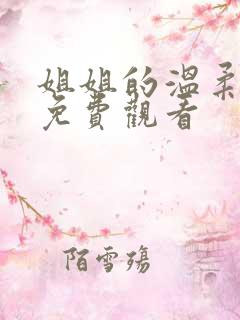 姐姐的溫柔
免費觀看
陌雪殤